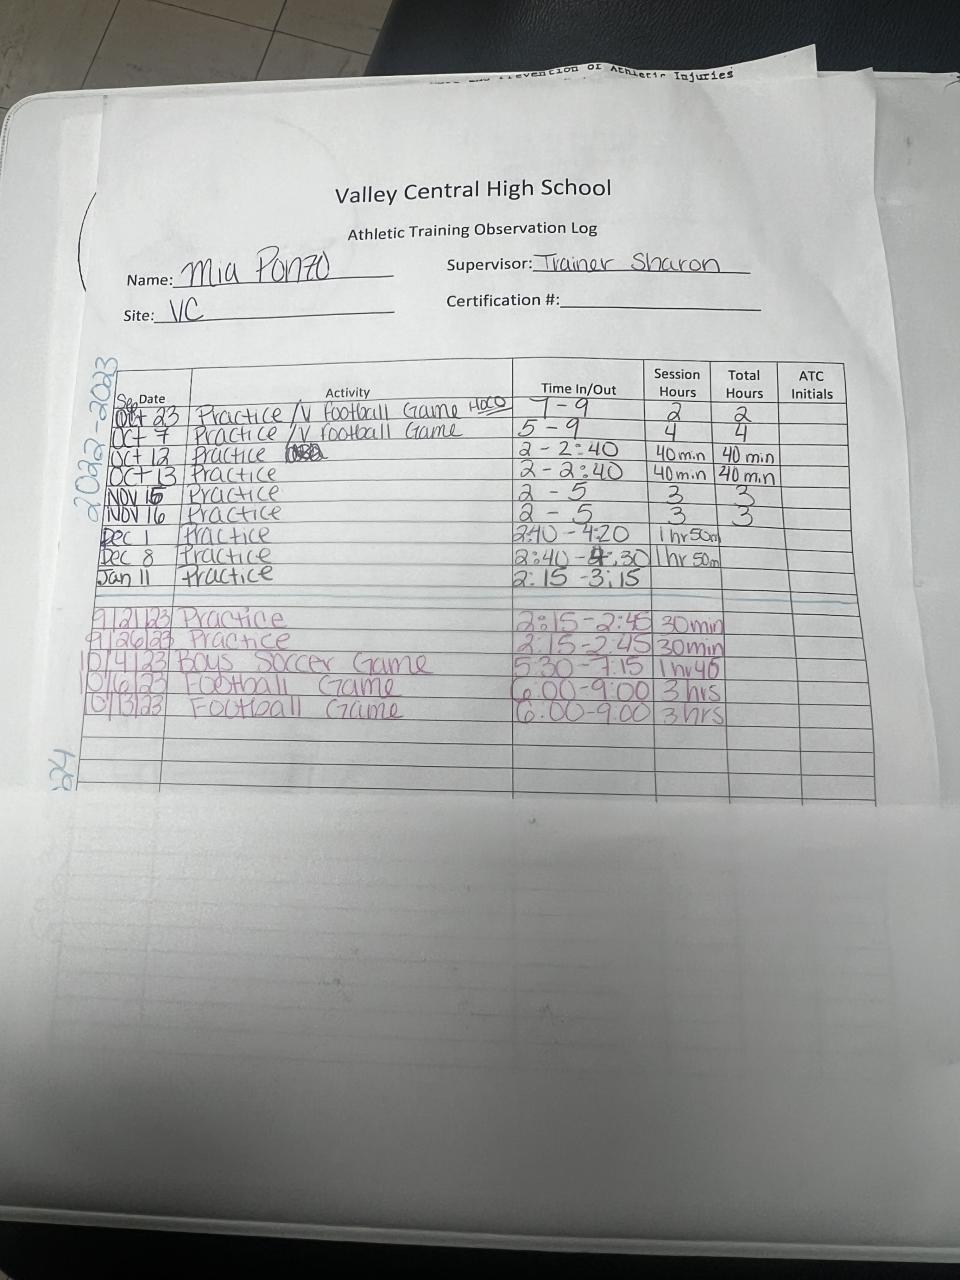 evention of Athletic Injuries
Valley Central High School
Athletic Training Observation Log
Name: Mia Ponzo Supervisor: Trainer Sharon
Site: VC Certification #:
2022-2023
Date Activity Time In/Out Session Hours Total Hours ATC Initials
Sep Oct 23 Practice / V football Game HOCO 7-9 2 2
Oct 7 Practice / V football Game 5-9 4 4
Oct 12 Practice 2-2:40 40 min 40 min
Oct 13 Practice 2-2:40 40 min 40 min
Nov 15 Practice 2-5 3 3
Nov 16 Practice 2-5 3 3
Dec 1 Practice 2:40-4:20 1 hr 50m
Dec 8 Practice 2:40-4:30 1 hr 50m
Jan 11 Practice 2:15-3:15
9/21/23 Practice 2:15-2:45 30min
9/26/23 Practice 2:15-2:45 30min
10/4/23 Boys Soccer Game 5:30-7:15 1 hr 45
10/6/23 Football Game 6:00-9:00 3 hrs
10/13/23 Football Game 6:00-9:00 3 hrs
24